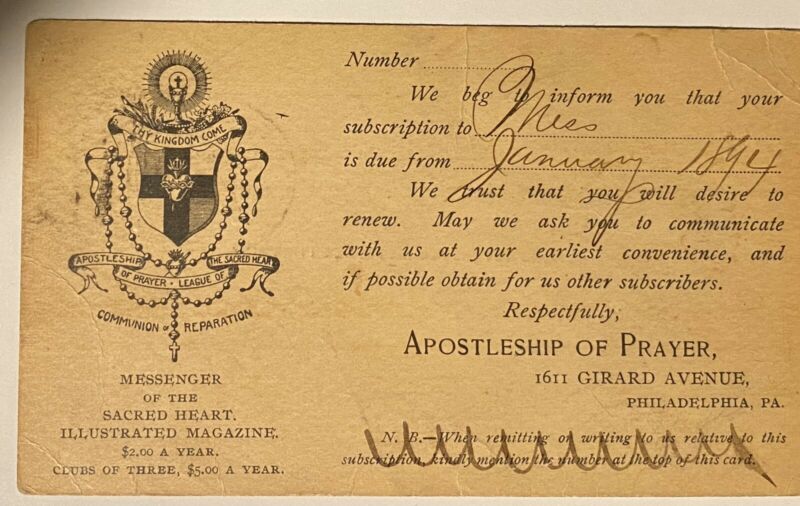 THY KINGDOM COME
APOSTLESHIP OF PRAYER · LEAGUE OF THE SACRED HEART
COMMUNION of REPARATION
MESSENGER
OF THE
SACRED HEART.
ILLUSTRATED MAGAZINE.
$2.00 A YEAR.
CLUBS OF THREE, $5.00 A YEAR.
Number
We beg to inform you that your
subscription to Mess
is due from January 1894
We trust that you will desire to
renew. May we ask you to communicate
with us at your earliest convenience, and
if possible obtain for us other subscribers.
Respectfully,
APOSTLESHIP OF PRAYER,
1611 GIRARD AVENUE,
PHILADELPHIA, PA.
N. B.—When remitting or writing to us relative to this
subscription, kindly mention the number at the top of this card.